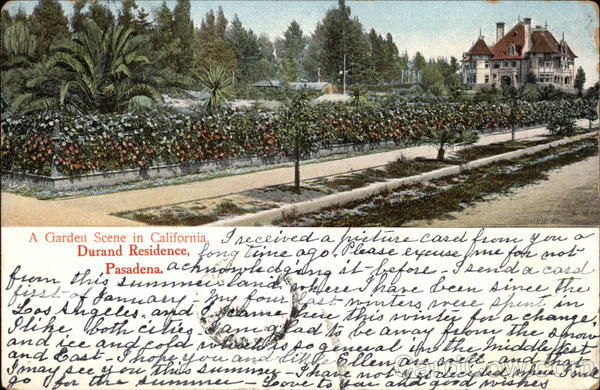 A Garden Scene in California.
Durand Residence,
Pasadena.
I received a picture card from you a
long time ago. Please excuse me for not
acknowledging it before - I send a card
from this summer land where I have been since the
first of January - My four last winters were spent in
Los Angeles, and I came here this winter for a change,
I like both cities. I am glad to be away from the snow
and ice and cold which is so general in the Middle West
and East - I hope you and little Ellen are well and that
I may see you this summer - I have not decided where I shall
go for the summer - Love to you and good wishes